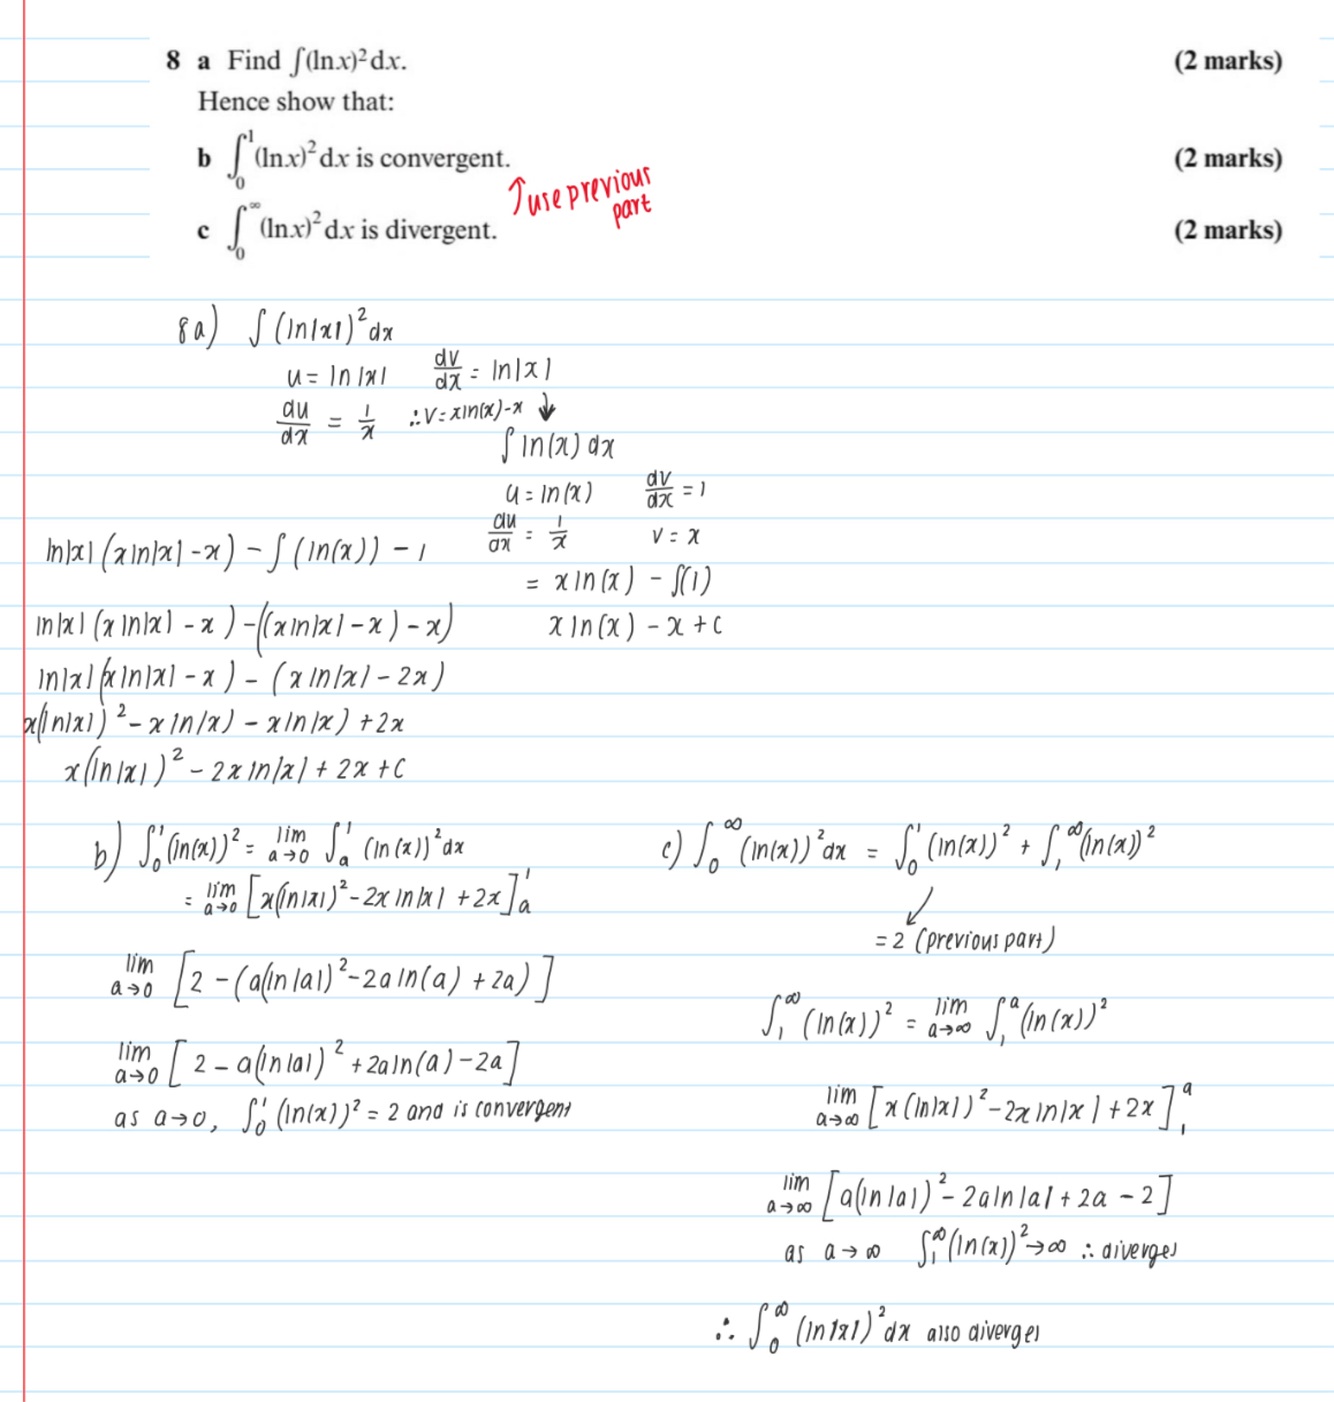 8 a Find ∫(ln x)² dx. (2 marks)
Hence show that:
b ∫₀¹ (ln x)² dx is convergent. (2 marks)
↑ use previous
part
c ∫₀^∞ (ln x)² dx is divergent. (2 marks)
8a) ∫ (ln|x|)² dx
u = ln|x| dv/dx = ln|x|
du/dx = 1/x ∴ v = xln(x)-x ↓
∫ ln(x) dx
u = ln(x) dv/dx = 1
du/dx = 1/x v = x
= xln(x) - ∫(1)
xln(x) - x + c
ln|x| (xln|x| - x) - ∫ (ln(x)) - 1
ln|x| (xln|x| - x) - ((xln|x| - x) - x)
ln|x| (xln|x| - x) - (xln|x| - 2x)
x(ln|x|)² - xln|x) - xln|x) + 2x
x(ln|x|)² - 2xln|x| + 2x + c
b) ∫₀¹ (ln(x))² = lim a→0 ∫ₐ¹ (ln(x))² dx
= lim a→0 [x(ln|x|)² - 2xln|x| + 2x]ₐ¹
lim a→0 [2 - (a(ln|a|)² - 2aln(a) + 2a)]
lim a→0 [2 - a(ln|a|)² + 2aln(a) - 2a]
as a→0, ∫₀¹ (ln(x))² = 2 and is convergent
c) ∫₀^∞ (ln(x))² dx = ∫₀¹ (ln(x))² + ∫₁^∞ (ln(x))²
↙
= 2 (previous part)
∫₁^∞ (ln(x))² = lim a→∞ ∫₁ᵃ (ln(x))²
lim a→∞ [x(ln|x|)² - 2xln|x| + 2x]₁ᵃ
lim a→∞ [a(ln|a|)² - 2aln|a| + 2a - 2]
as a→∞ ∫₁^∞ (ln(x))² → ∞ ∴ diverges
∴ ∫₀^∞ (ln|x|)² dx also diverges